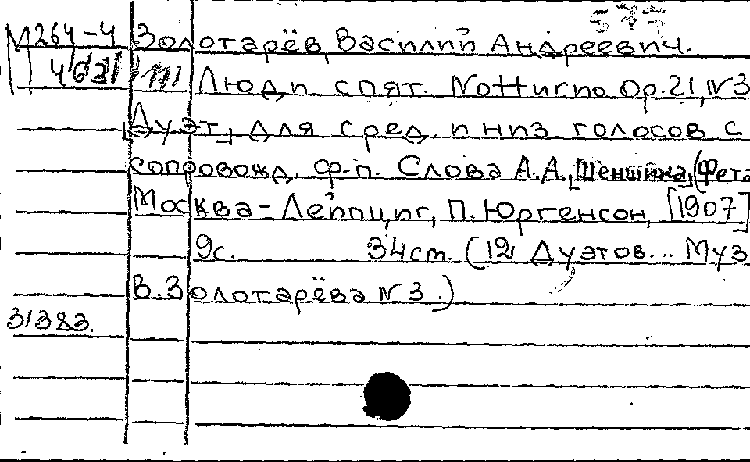 М 264-4 Золотарёв, Василий Андреевич.
Люди спят. Notturno Op. 21, N3
[Дуэт] для сред. и низ голосов с
сопровожд. ф-п. Слова А.А. [Шеншина] (Фета
Москва - Лейпциг, П. Юргенсон, [1907]
9с. 34 см. (12 Дуэтов... Муз
В. Золотарёва N 3.)
31383.